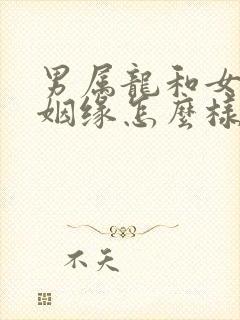 男属龍和女
姻缘怎麼樣
不天